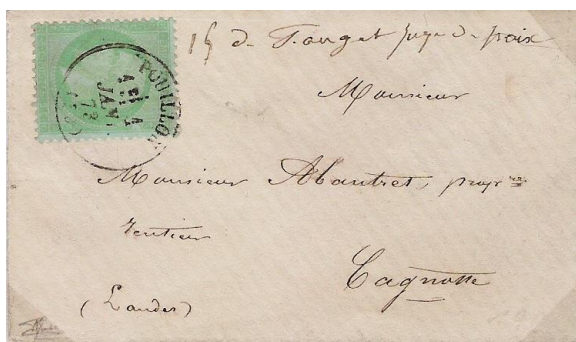 POUILLON
JANV.
73
de Pouget juge de paix
Monsieur
Monsieur Abautret, propre
rentier
Cagnotte
(Landes)